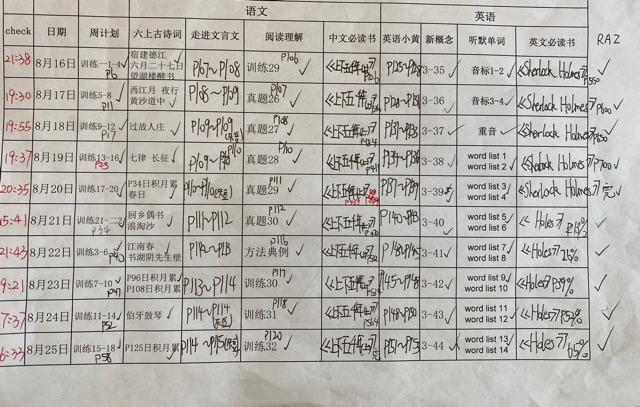 语文
英语
check 日期 周计划 六上古诗词 走进文言文 阅读理解 中文必读书 英语小黄 新概念 听默单词 英文必读书 RAZ
21:38 8月16日 训练1-4 P6 宿建德江 六月二十七日 望湖楼醉书 P107~P108 训练29 P106 《上下五千年》 P125~P128 3-35 音标1-2 《Sherlock Holmes》P550
19:30 8月17日 训练5-8 P11 西江月 夜行 黄沙道中 P108~P109 真题26 P107 《上下五千年》 3-36 音标3-4 《Sherlock Holmes》P600
19:55 8月18日 训练9-12 P17 过故人庄 P109~P109 真题27 P108 《上下五千年》 P131~P133 3-37 重音 《Sherlock Holmes》P650
19:37 8月19日 训练13-16 P23 七律 长征 P109~P110 真题28 P110 《上下五千年》 P134~P136 3-38 word list 1 word list 2 《Sherlock Holmes》P700
20:35 8月20日 训练17-20 P34日积月累 春日 真题29 P111 《上下五千年》 P137~P139 3-39 word list 3 word list 4 《Sherlock Holmes》完
15:41 8月21日 P34 回乡偶书 浪淘沙 P111~P112 真题30 P112 《上下五千年》 P140~ 3-40 word list 5 word list 6 《Holes》
21:43 8月22日 训练3-6 P40 江南春 书湖阴先生壁 P112~P113 方法典例 P116 《上下五千年》 3-41 word list 7 word list 8 《Holes》
9:21 8月23日 训练7-10 P47 P96日积月累 P108日积月累 P113~P114 训练30 P117 《上下五千年》 P145~P148 3-42 word list 9 word list 10 《Holes》P39%
7:37 8月24日 训练11-14 P52 伯牙鼓琴 P114~P114 训练31 P118 《上下五千年》 P148~P150 3-43 word list 11 word list 12 《Holes》P52%
8月25日 训练15-18 P58 P125日积月累 P114~P115 训练32 P120 《上下五千年》 P151~ 3-44 word list 13 word list 14 《Holes》65%